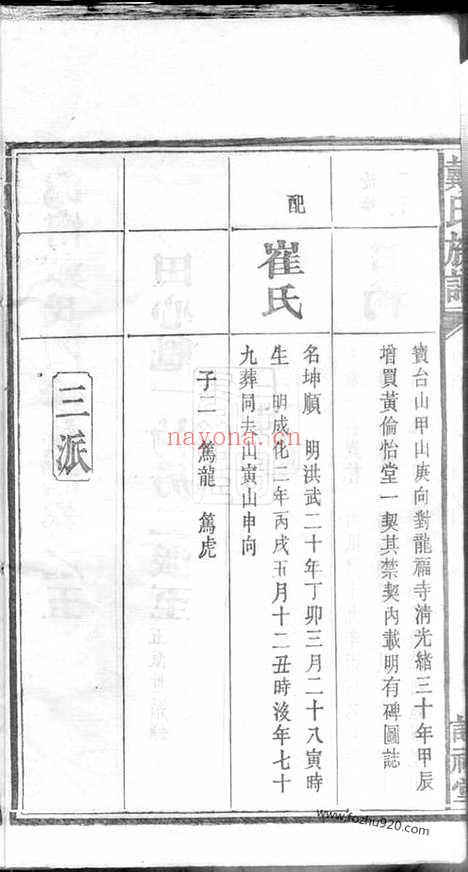 戴氏族譜
寶台山甲山庚向對龍福寺清光緒三十年甲辰
增買黃倫怡堂一契其禁契內載明有碑圖誌
配
崔氏
名坤順 明洪武二十年丁卯三月二十八寅時
生 明成化二年丙戌五月十二丑時沒年七十
九葬同夫山寅山申向
子二 篤龍 篤虎
三派
nayona.cn
www.fozhu920.com